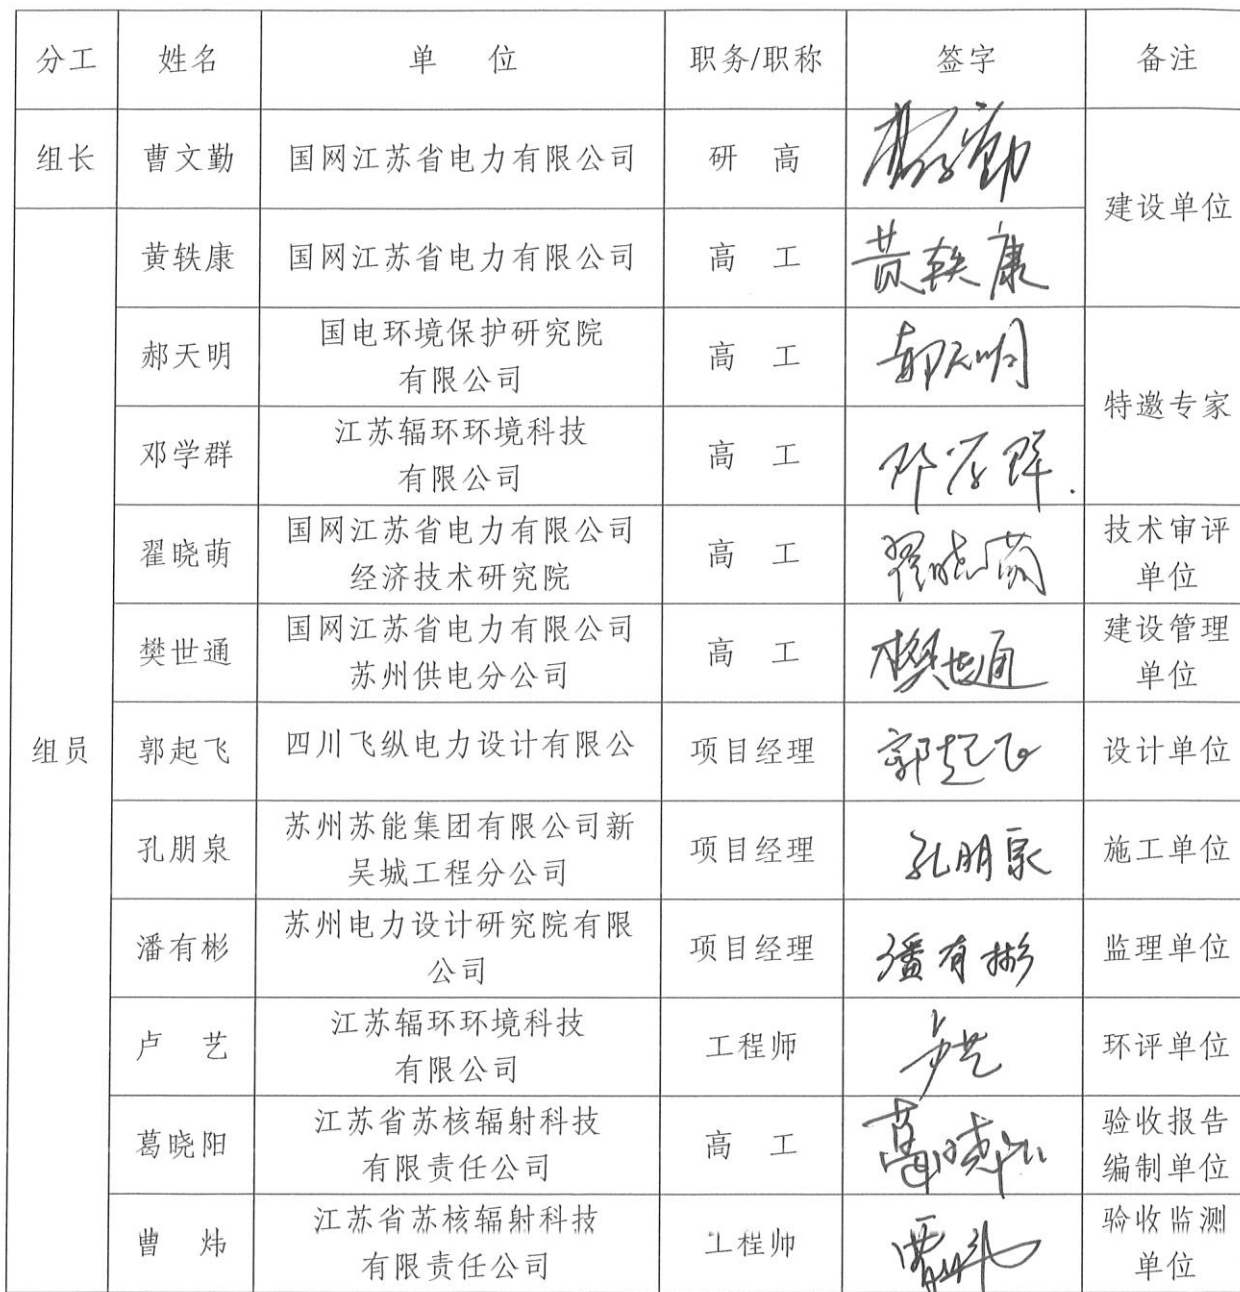 分工 姓名 单 位 职务/职称 签字 备注
组长 曹文勤 国网江苏省电力有限公司 研 高 曹文勤 建设单位
组员 黄轶康 国网江苏省电力有限公司 高 工 黄轶康
郝天明 国电环境保护研究院
有限公司 高 工 郝天明 特邀专家
邓学群 江苏辐环环境科技
有限公司 高 工 邓学群
翟晓萌 国网江苏省电力有限公司
经济技术研究院 高 工 翟晓萌 技术审评
单位
樊世通 国网江苏省电力有限公司
苏州供电分公司 高 工 樊世通 建设管理
单位
郭起飞 四川飞纵电力设计有限公 项目经理 郭起飞 设计单位
孔朋泉 苏州苏能集团有限公司新
吴城工程分公司 项目经理 孔朋泉 施工单位
潘有彬 苏州电力设计研究院有限
公司 项目经理 潘有彬 监理单位
卢 艺 江苏辐环环境科技
有限公司 工程师 卢艺 环评单位
葛晓阳 江苏省苏核辐射科技
有限责任公司 高 工 葛晓阳 验收报告
编制单位
曹 炜 江苏省苏核辐射科技
有限责任公司 工程师 曹炜 验收监测
单位